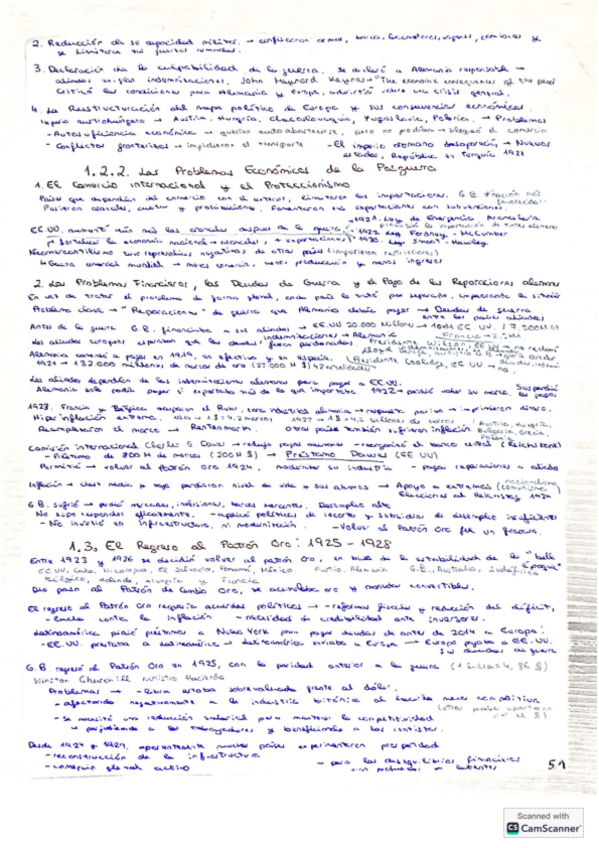 2. Reducción de su capacidad militar → confiscaron armas, barcos, locomotoras, vagones, camiones y
se limitaron sus fuerzas armadas.
3. Declaración de la culpabilidad de la guerra. Se declaró a Alemania responsable →
aliados exigían indemnizaciones, John Maynard Keynes "The economic consequences of the peace"
criticó las condiciones para Alemania y Europa, advirtió sobre una crisis general.
4. La Reestructuración del mapa político de Europa y sus consecuencias económicas.
Imperio austrohúngaro → Austria, Hungría, Checoslovaquia, Yugoslavia, Polonia. → Problemas
- Autosuficiencia económica → querían autoabastecerse, pero no podían → bloqueó el comercio
- Conflictos fronterizos → impidieron el transporte - El imperio otomano desapareció → Nuevos
estados, República de Turquía 1921
1.2.2. Los Problemas Económicos de la Posguerra
1. El Comercio Internacional y el Proteccionismo
Países que dependían del comercio con el exterior, limitaron las importaciones. G.B.
Pusieron aranceles, cuotas y prohibiciones. Fomentaron sus exportaciones con subvenciones.
→ 1921. Ley de Emergencia Arancelaria
EE.UU. aumentó aún más los aranceles después de la guerra → 1922 Ley Fordney - McCumber
→ fortalecer la economía nacional → aranceles, + exportaciones → 1930. Ley Smoot-Hawley
Neomercantilismo tuvo represalias negativas de otros países (impusieron restricciones)
↳ Guerra comercial mundial → menos comercio, menos producción y menos ingresos
2. Los Problemas Financieros, las Deudas de Guerra y el Pago de las Reparaciones alemanas
En vez de tratar el problema de forma global, cada país lo trató por separado, empeorando la situación
Problema clave → "Reparaciones" de guerra que Alemania debía pagar → Deudas de guerra
entre los países aliados
Antes de la guerra G.B. financiaba a sus aliados → EE.UU 20.000 Millones → 10M EE.UU. / 7.500M GB
Los aliados europeos esperaban que las deudas fueran perdonadas
Alemania comenzó a pagar en 1919, en efectivo y en especie.
1921 → 132.000 millones de marcos de oro (33.000 M $)
(Presidente Coolidge, EE.UU → no.
Los aliados dependían de las indemnizaciones alemanas para pagar a EE.UU.
Alemania solo podía pagar si exportaba más de lo que importaba 1922 → perdió valor su marco.
1923. Francia y Bélgica ocuparon el Ruhr, zona industrial alemana → respuesta pasiva → imprimieron dinero.
Hiperinflación extrema.
Reemplazaron el marco → Rentenmark. Otros países también sufrieron inflación
Comisión internacional Charles G Dawes → redujo pagos alemanes - reorganizó el banco central (Reichsbank)
- Préstamo de 800 M de marcos (200M $) → Préstamo Dawes (EE UU)
Permitió → volver al Patrón Oro 1924, modernizar su industria - pagar reparaciones a aliados
Inflación → clase media y baja perdieron nivel de vida y sus ahorros → Apoyo a extremos
Elecciones al Reichstag 1924
G.B. sufrió → perdió mercados, inversiones, barcos mercantes, Desempleo alto
- No supo responder eficazmente. - aplicó políticas de recorte y subsidios de desempleo insuficientes
- No invirtió en infraestructura, ni modernización. - Volver al Patrón Oro fue un fracaso.
1.3. El Regreso al Patrón Oro: 1925 - 1928
Entre 1923 y 1926 se decidió volver al patrón oro, en busca de la estabilidad de la "belle
époque"
EE.UU, Cuba, Nicaragua, El Salvador, Panamá, México Austria, Alemania G.B, Australia, Sudáfrica
Bélgica, Holanda, Hungría y Francia
Dio paso al Patrón de Cambio Oro, se acumulaba oro y moneda convertible.
El regreso al Patrón Oro requería acuerdos políticos → - reformas fiscales y reducción del déficit,
- lucha contra la inflación - necesidad de credibilidad ante inversores.
Latinoamérica pidió préstamos a Nueva York para pagar deudas de antes de 2014 a Europa:
- EE.UU. prestaba a Latinoamérica → Latinoamérica enviaba a Europa → Europa pagaba a EE.UU.
sus deudas de guerra
G.B. regresó al Patrón Oro en 1925, con la paridad anterior a la guerra (1 libra = 4,86 $)
Winston Churchill ministro Hacienda
Problemas → - libra estaba sobrevaluada frente al dólar.
- afectando negativamente a la industria británica al hacerla menos competitiva
- se necesitó una reducción salarial para mantener la competitividad
→ perjudicando a los trabajadores y beneficiando a los rentistas.
Desde 1924 y 1929, aparentemente muchos países experimentaron prosperidad
- reconstrucción de la infraestructura
- comercio global activo
- pero los desequilibrios financieros
51
Scanned with
CS CamScanner